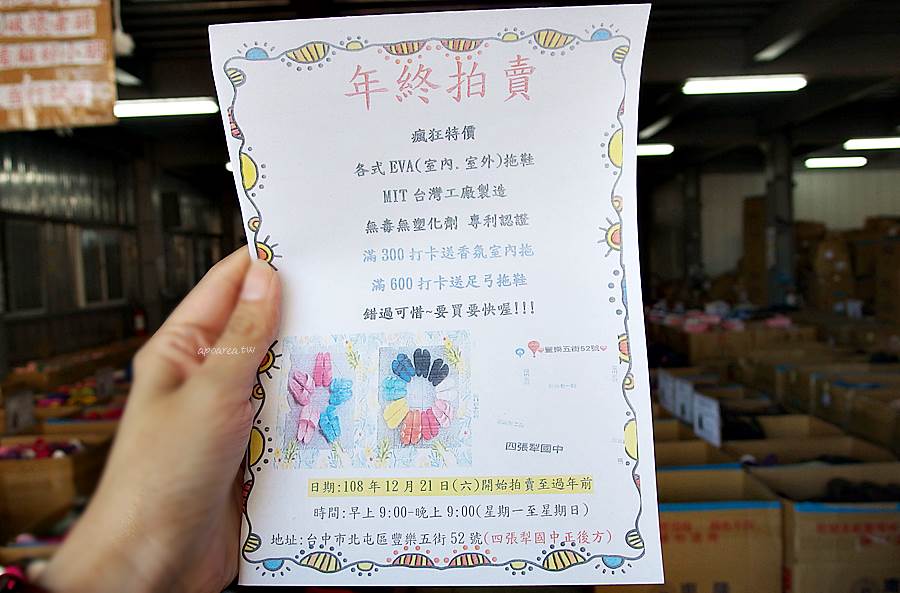 年終拍賣
瘋狂特價
各式EVA(室內.室外)拖鞋
MIT台灣工廠製造
無毒無塑化劑 專利認證
滿300打卡送香氛室內拖
滿600打卡送足弓拖鞋
錯過可惜~要買要快喔!!!
豐樂五街52號
四張犁國中
日期:108年12月21日(六)開始拍賣至過年前
時間:早上9:00-晚上9:00(星期一至星期日)
地址:台中市北屯區豐樂五街52號(四張犁國中正後方)
apoarea.tw